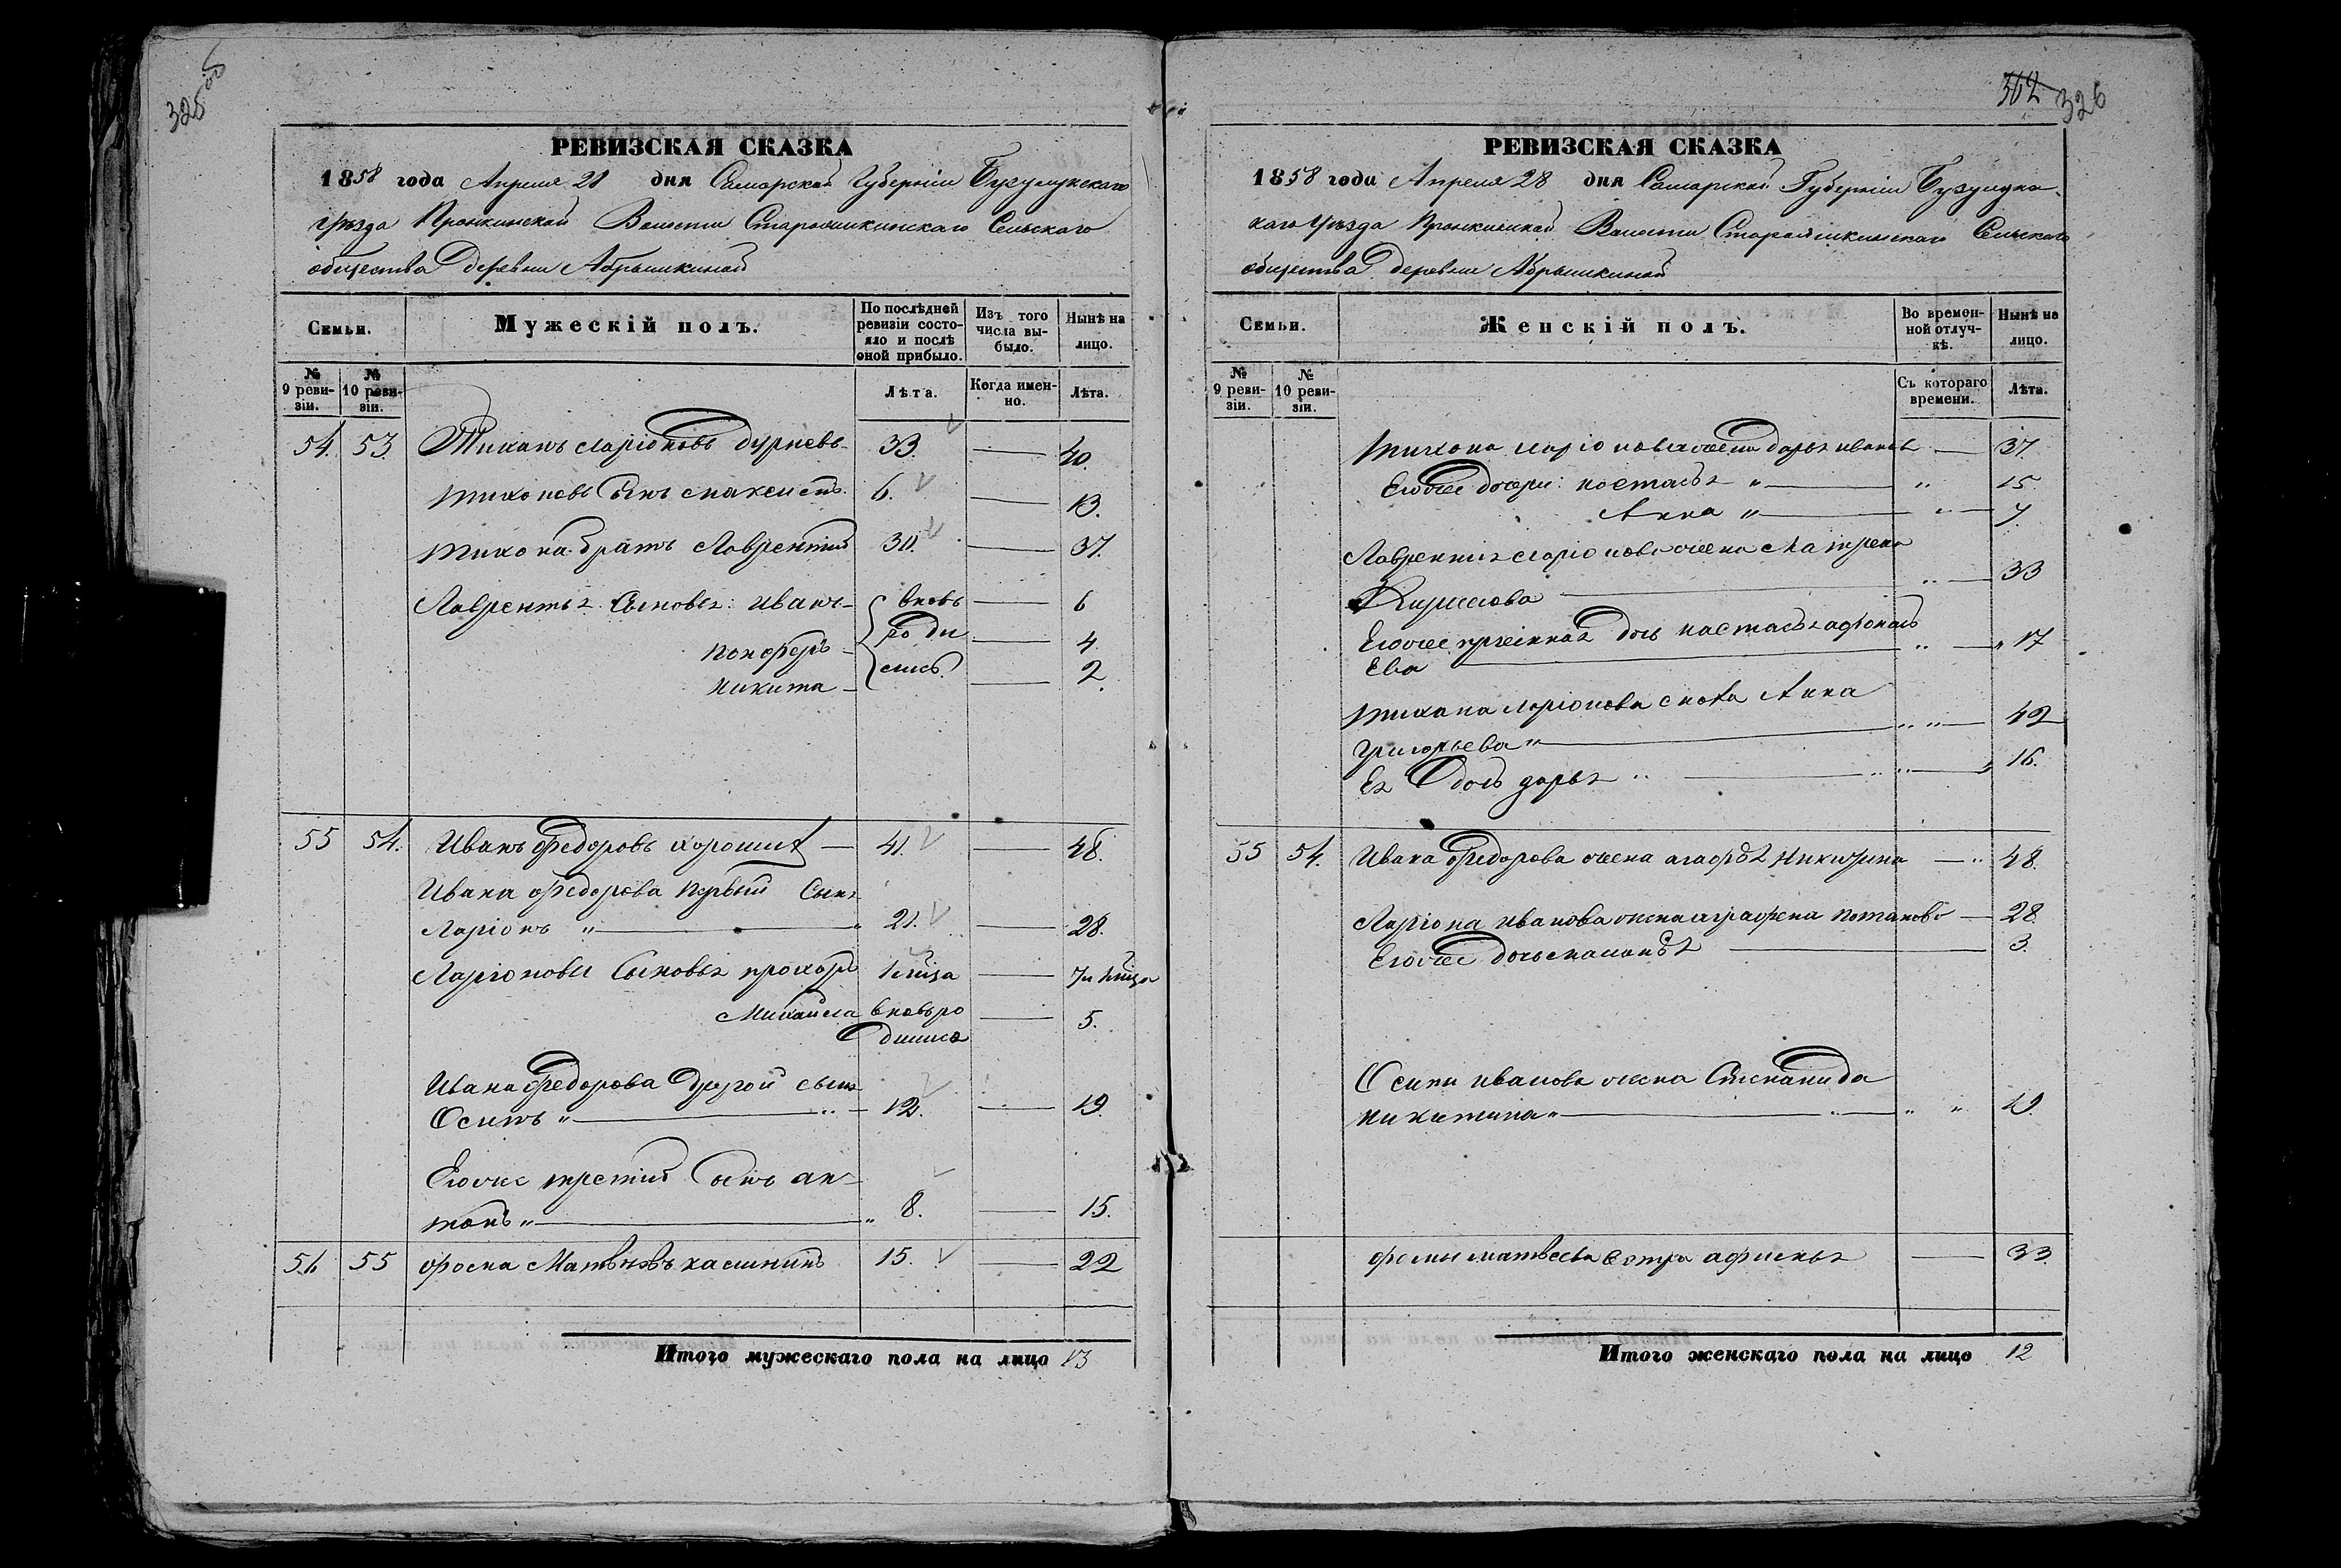 325 об
РЕВИЗСКАЯ СКАЗКА
1858 года Апреля 28 дня Самарской Губерніи Бузулукскаго
Уѣзда Пронкинской Волости Староашкинскаго Сельскаго
общества Деревни Абрышкиной
Семьи.
Мужескій полъ.
По послѣдней ревизіи состояло и послѣ оной прибыло.
Изъ того числа выбыло.
Нынѣ на лицо.
№ 9 ревизіи.
№ 10 ревизіи.
Лѣта.
Когда именно.
Лѣта.
54. 53. Тихонъ Ларіоновъ 33. 40.
Тихоновъ Сынъ 6. 13.
Тихона братъ Лаврентий 30. 37.
Лаврентья Сыновья: Иванъ вновь 6
роди 4
Никита лись 2
55 54. Иванъ Федоровъ 41. 48.
Ивана Федорова первый Сынъ
Ларіонъ „ 21. 28.
Ларіоновы Сыновья прохоръ
Михайла вновь ро 5.
дился
Ивана Федорова Другой сынъ
Осипъ „ 12. 19.
Егоже третий Сынъ ан-
тонъ „ 8. 15.
56. 55 Матвѣевъ 15. 22
Итого мужескаго пола на лицо 13
362 326
РЕВИЗСКАЯ СКАЗКА
1858 года Апреля 28 дня Самарской Губерніи Бузулукс-
каго Уѣзда Пронкинской Волости Староашкинскаго Сельскаго
общества деревни Абрышкиной
Семьи.
Женскій полъ.
Во временной отлучкѣ.
Нынѣ на лицо.
№ 9 ревизіи.
№ 10 ревизіи.
Съ котораго времени.
Лѣта.
Тихона Ларіонова жена дарья иванова 37.
Егоже дочери: настасья „ 15.
Анна „ 7.
Лаврентия Ларіонова жена Матрена
Кирилова 33
Егоже дочь настасья
17
Тихона Ларіонова сноха Анна
григорьева „ 42
Ея дочь дарья 16.
55 54. Ивана Федорова жена агафья Никитина 48.
Ларіона иванова жена аграфена потапова 28
Егоже дочь маланья 3.
Осипа иванова жена Степанида
никитина „ 19.
фомы матвеева сестра афимья 33.
Итого женскаго пола на лицо 12